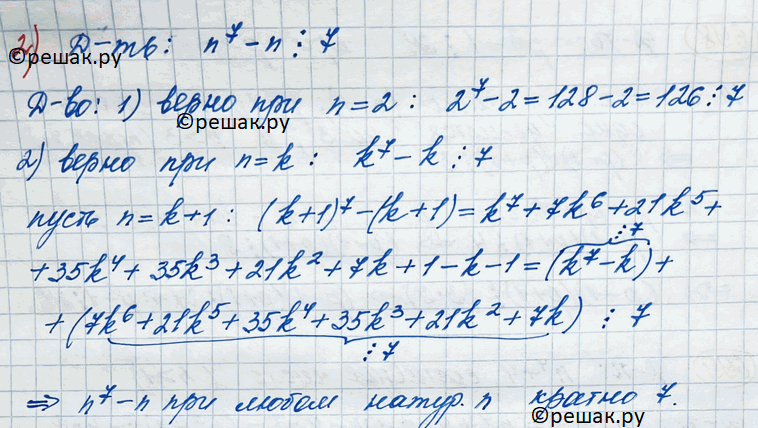 2) Д-ть: n⁷-n ⋮ 7
©решак.ру
Д-во: 1) верно при n=2: 2⁷-2=128-2=126⋮7
©решак.ру
2) верно при n=k: k⁷-k ⋮ 7
пусть n=k+1: (k+1)⁷-(k+1)=k⁷+7k⁶+21k⁵+
⋮7
+35k⁴+35k³+21k²+7k+1-k-1=(k⁷-k)+
+(7k⁶+21k⁵+35k⁴+35k³+21k²+7k) ⋮ 7
⋮7
⇒ n⁷-n при любом натур. n кратно 7.
©решак.ру